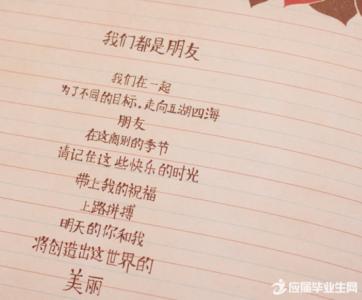 我们都是朋友
我们在一起
为了不同的目标..走向五湖四海
朋友
在这离别的季节
请记住这些快乐的时光
带上我的祝福
上路拼搏
明天的你和我
将创造出这世界的
美丽
应届毕业生网